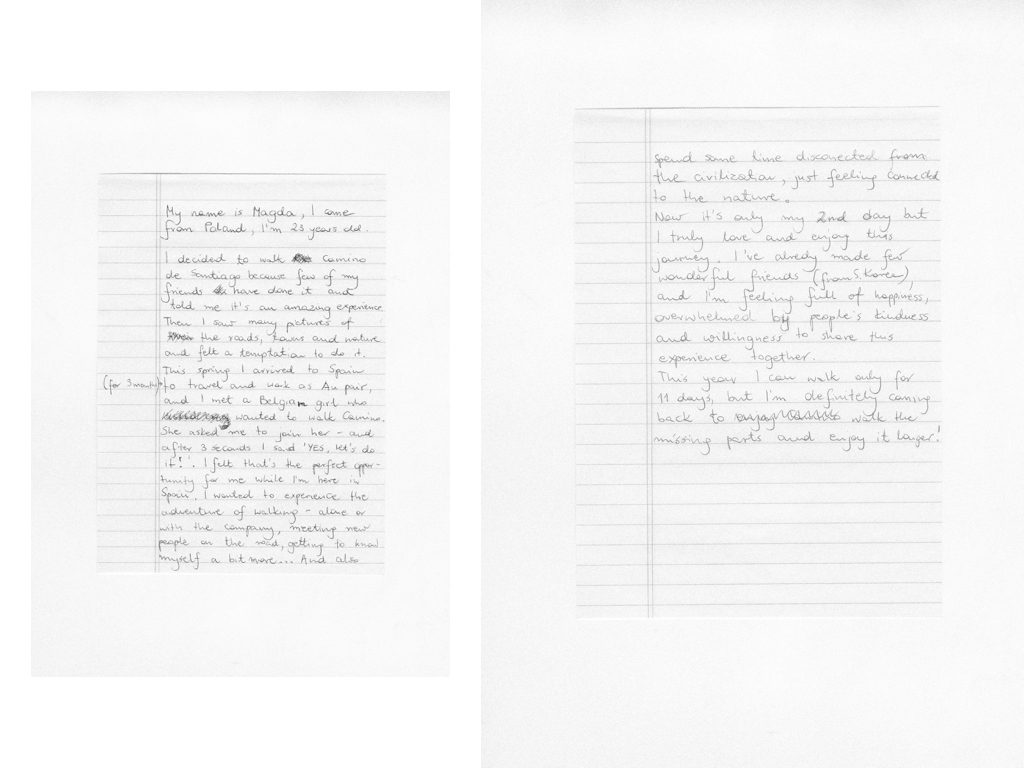 My name is Magda, I come
from Poland, I'm 23 years old.
I decided to walk Camino
de Santiago because few of my
friends have done it and
told me it's an amazing experience.
Then I saw many pictures of
the roads, towns and nature
and felt a temptation to do it.
This spring I arrived to Spain
(for 3 months) to travel and work as Au pair,
and I met a Belgian girl who
wanted to walk Camino.
She asked me to join her - and
after 3 seconds I said 'YES, let's do
it!'. I felt that's the perfect oppor-
tunity for me while I'm here in
Spain. I wanted to experience the
adventure of walking - alone or
with the company, meeting new
people on the road, getting to know
myself a bit more... And also
spend some time disconected from
the civilization, just feeling connected
to the nature.
Now it's only my 2nd day but
I truly love and enjoy this
journey. I've alredy made few
wonderful friends (from S. Korea),
and I'm feeling full of happiness,
overwhelmed by people's kindness
and willingness to share this
experience together.
This year I can walk only for
11 days, but I'm definitely coming
back to walk the
missing parts and enjoy it longer!